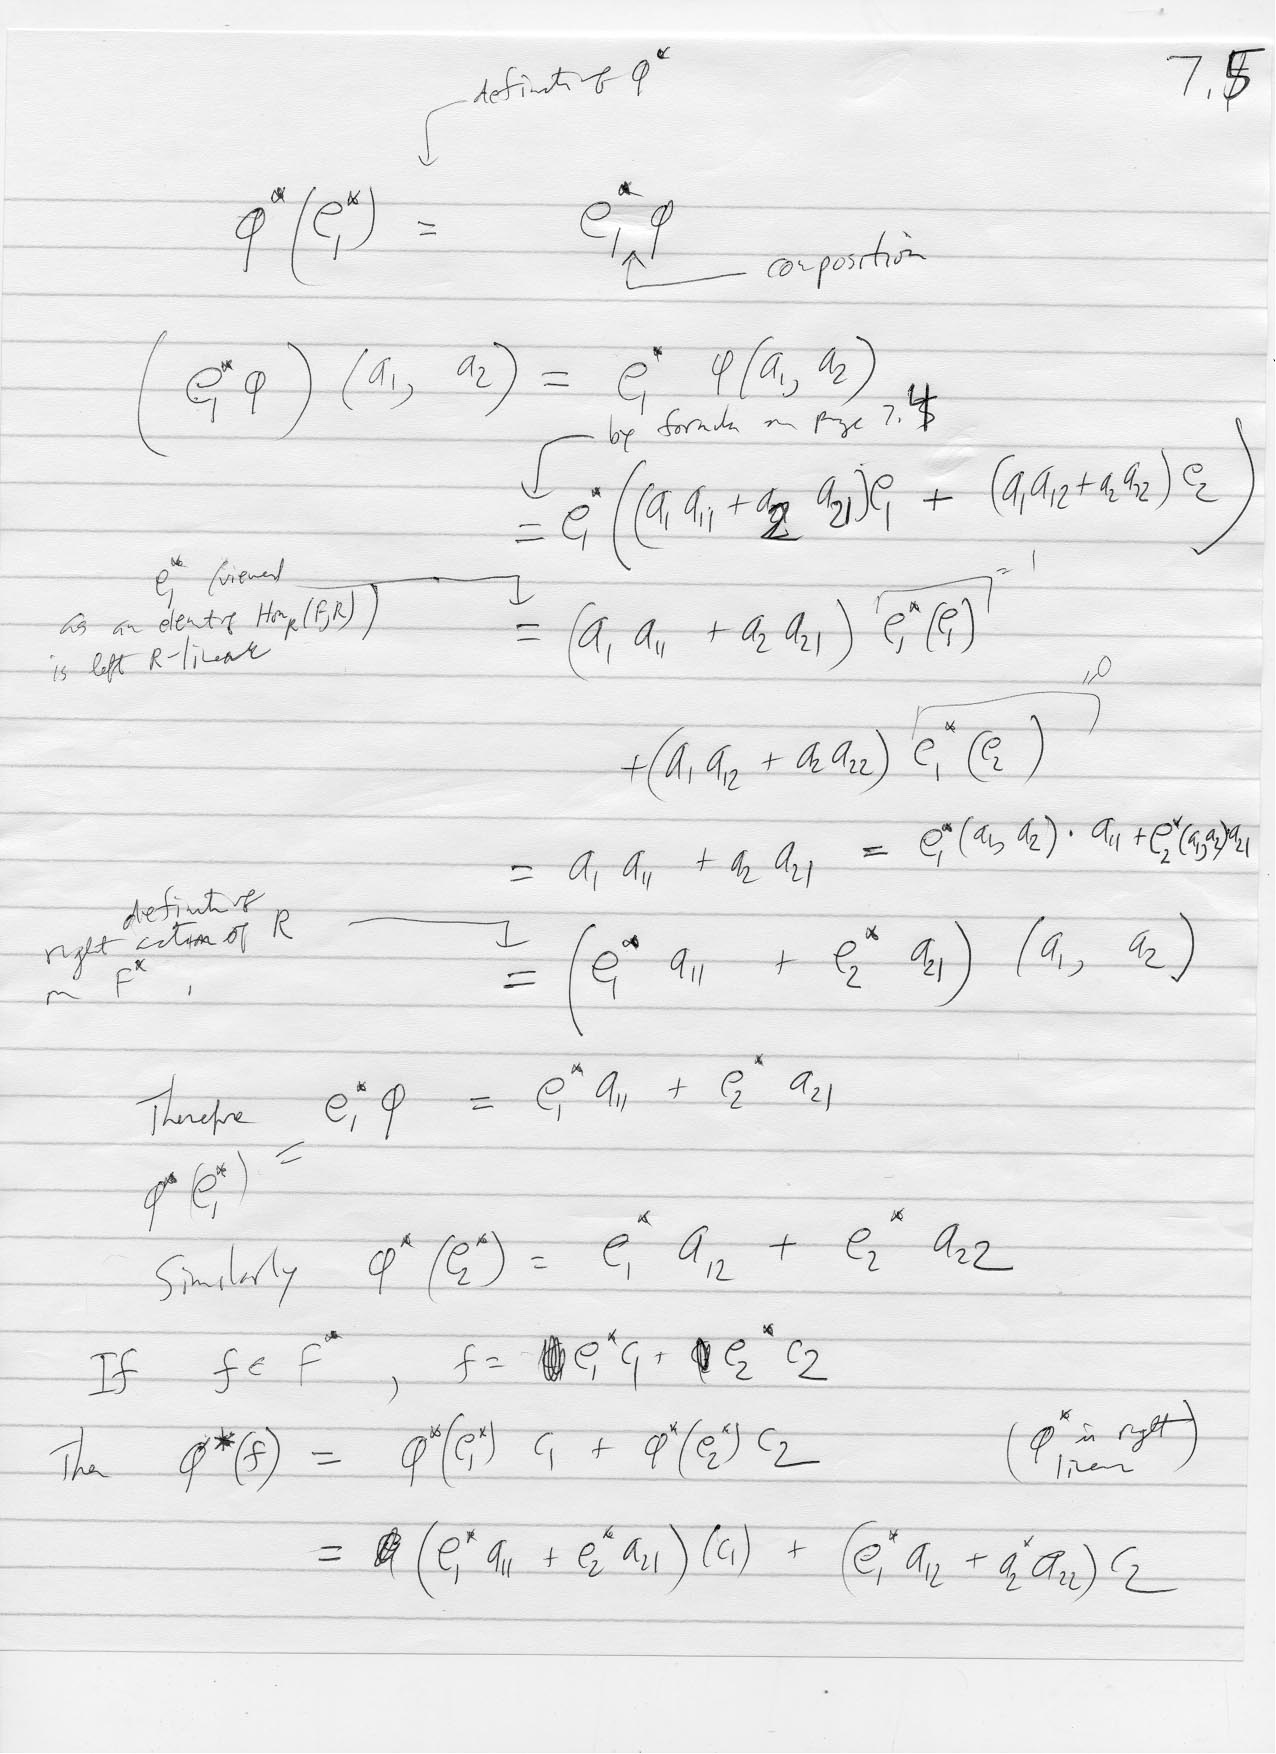 7.5
definition of φ*
φ*(e₁*) = e₁* φ
composition
(e₁* φ)(a₁, a₂) = e₁* φ(a₁, a₂)
by formula on page 7.4
= e₁*((a₁ a₁₁ + a₂ a₂₁)e₁ + (a₁ a₁₂ + a₂ a₂₂) e₂)
e₁* (viewed
as an element of Hom_R(F,R))
is left R-linear
= (a₁ a₁₁ + a₂ a₂₁) e₁*(e₁) = 1
+ (a₁ a₁₂ + a₂ a₂₂) e₁*(e₂) = 0
= a₁ a₁₁ + a₂ a₂₁ = e₁*(a₁, a₂) · a₁₁ + e₂*(a₁, a₂) · a₂₁
definition of
right action of R
on F*,
= (e₁* a₁₁ + e₂* a₂₁) (a₁, a₂)
Therefore e₁* φ = e₁* a₁₁ + e₂* a₂₁
φ*(e₁*) =
Similarly φ*(e₂*) = e₁* a₁₂ + e₂* a₂₂
If f ∈ F*, f = e₁* c₁ + e₂* c₂
Then φ*(f) = φ*(e₁*) c₁ + φ*(e₂*) c₂ (φ* is right
linear)
= (e₁* a₁₁ + e₂* a₂₁)(c₁) + (e₁* a₁₂ + a₂* a₂₂) c₂